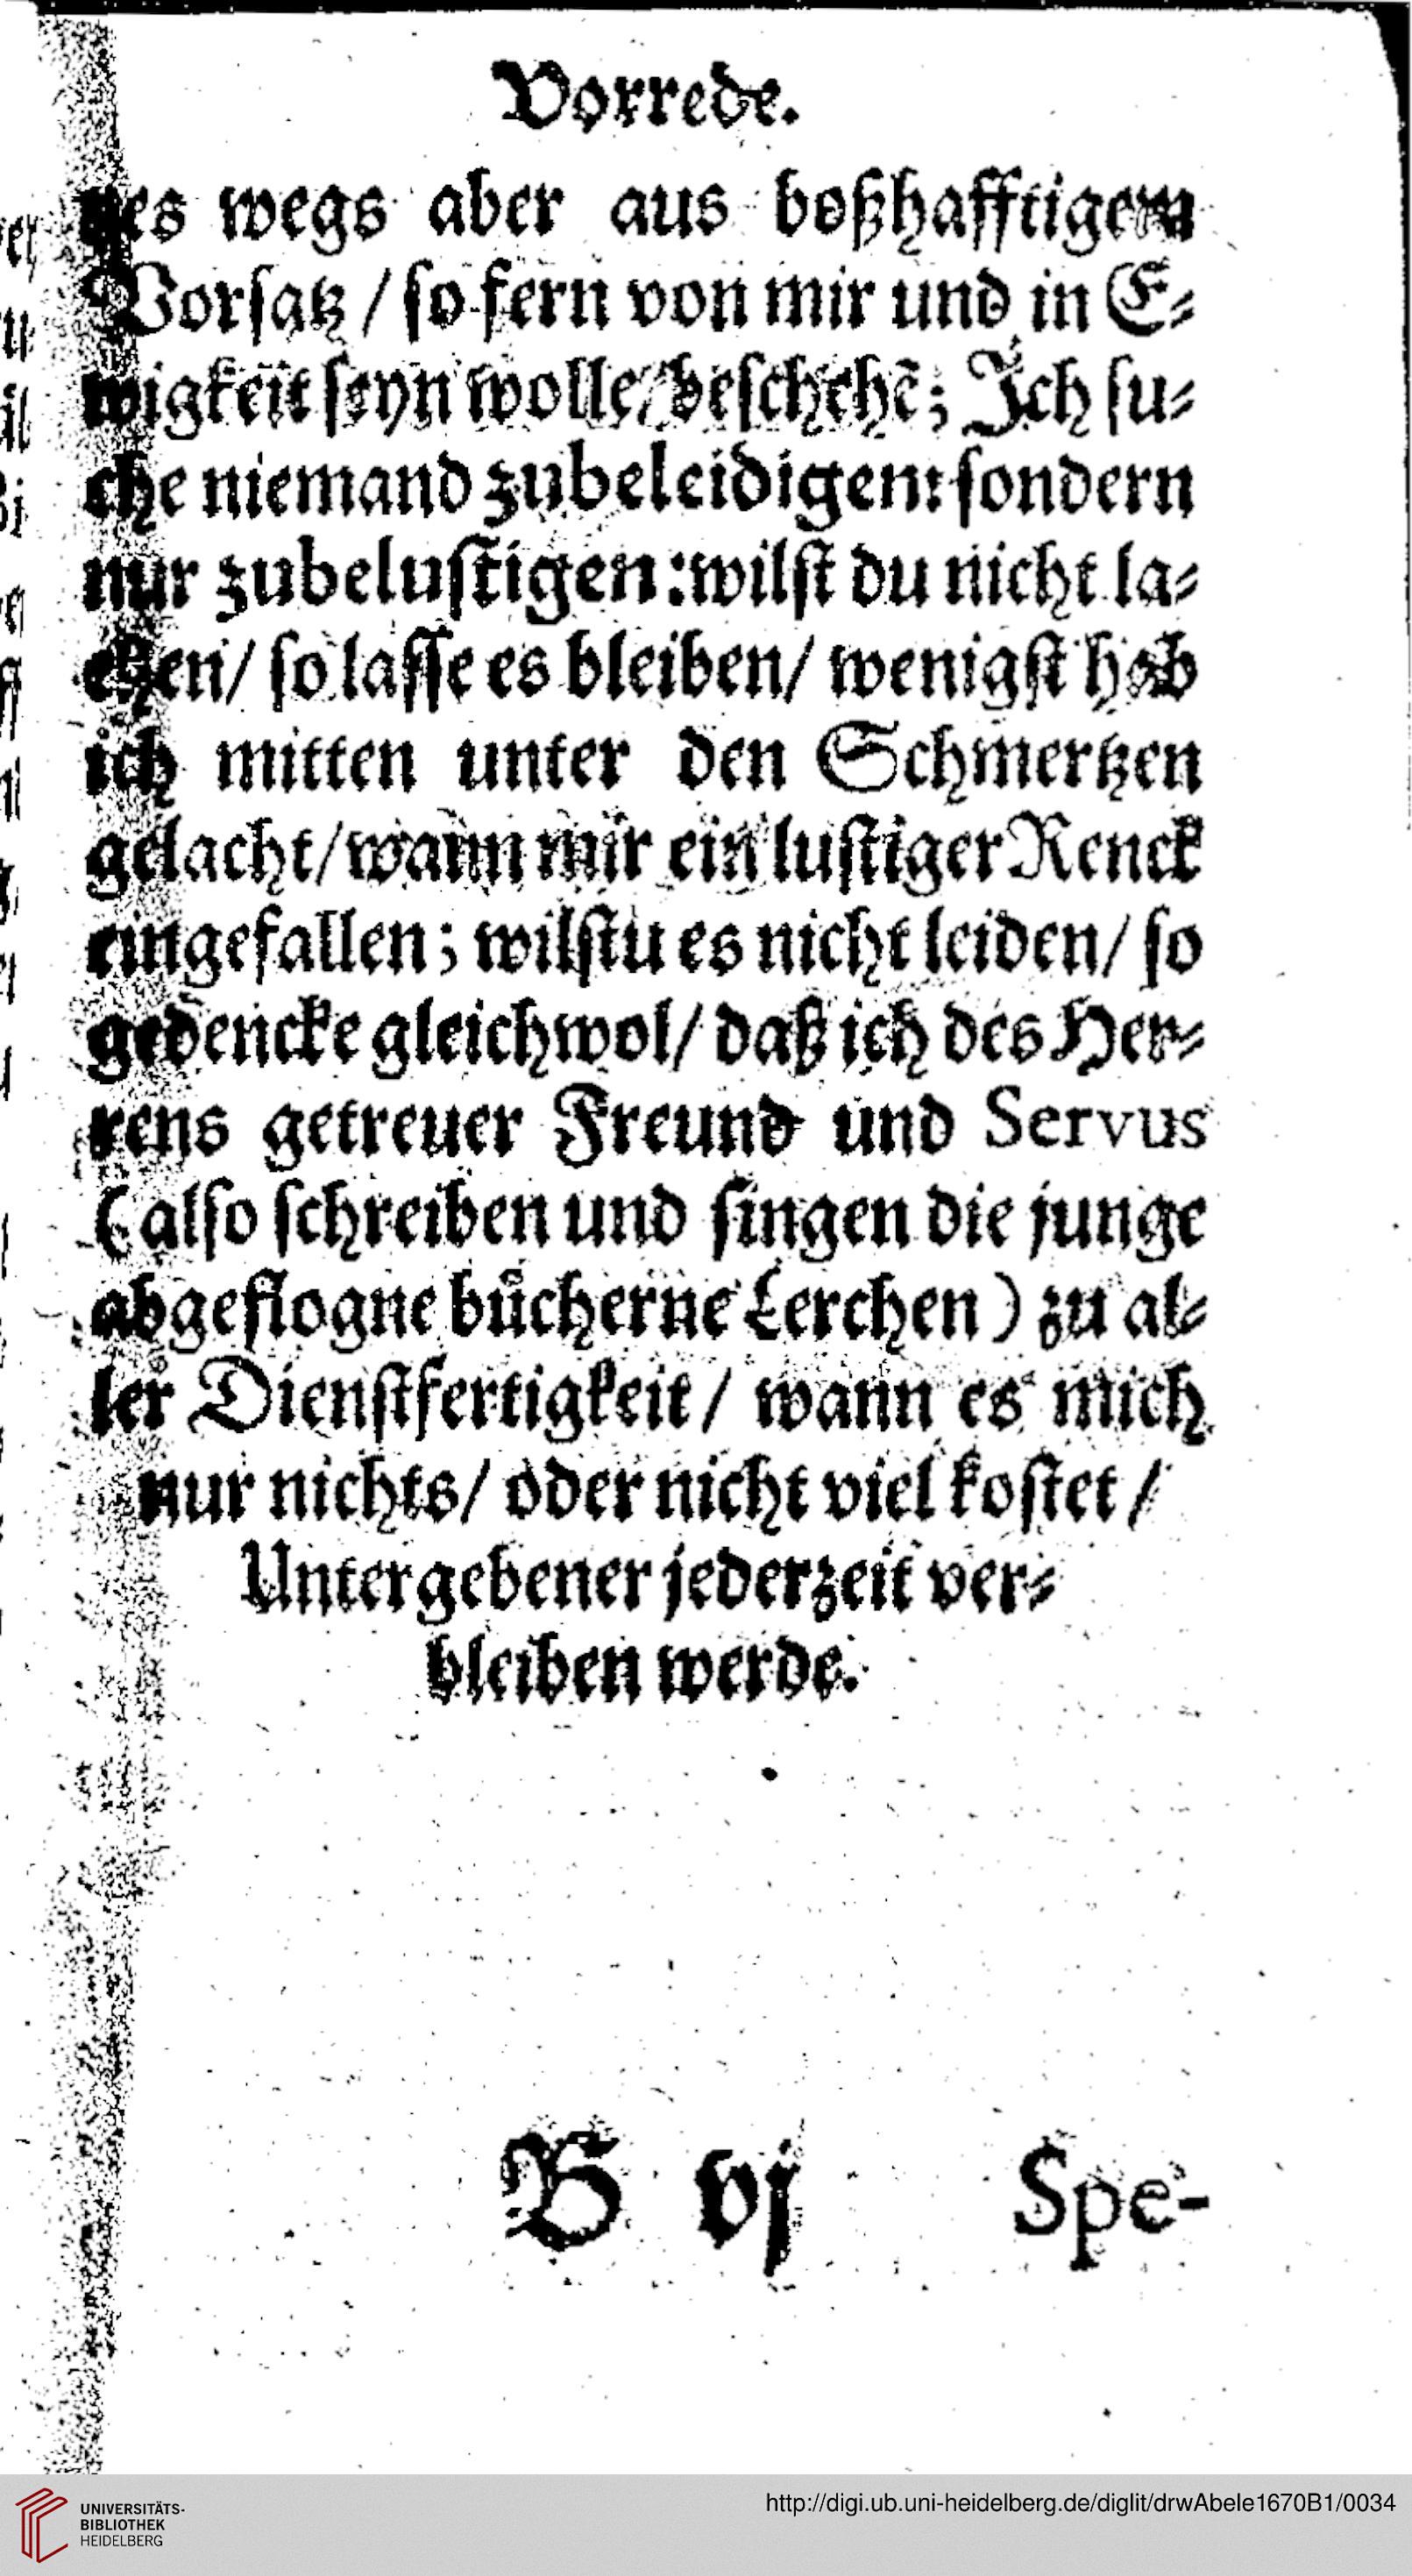 Vorrede.
nes wegs aber aus boßhafftigem
Vorsatz / so fern von mir und in E⸗
wigkeit seyn wolle / beschehẽ; Ich su⸗
che niemand zubeleidigen: sondern
nur zubelustigen: wilst du nicht la⸗
chen / so lasse es bleiben / wenigst hab
ich mitten unter den Schmertzen
gelacht / wann mir ein lustiger Renck
eingefallen; wilstu es nicht leiden / so
gedencke gleichwol / daß ich des Her⸗
rens getreuer Freund und Servus
( also schreiben und singen die junge
abgeflogne buͤcherne Lerchen ) zu al⸗
ler Dienstfertigkeit / wann es mich
nur nichts / oder nicht viel kostet /
Untergebener jederzeit ver⸗
bleiben werde.
B vj Spe-
UNIVERSITÄTS-
BIBLIOTHEK
HEIDELBERG
http://digi.ub.uni-heidelberg.de/diglit/drwAbele1670B1/0034